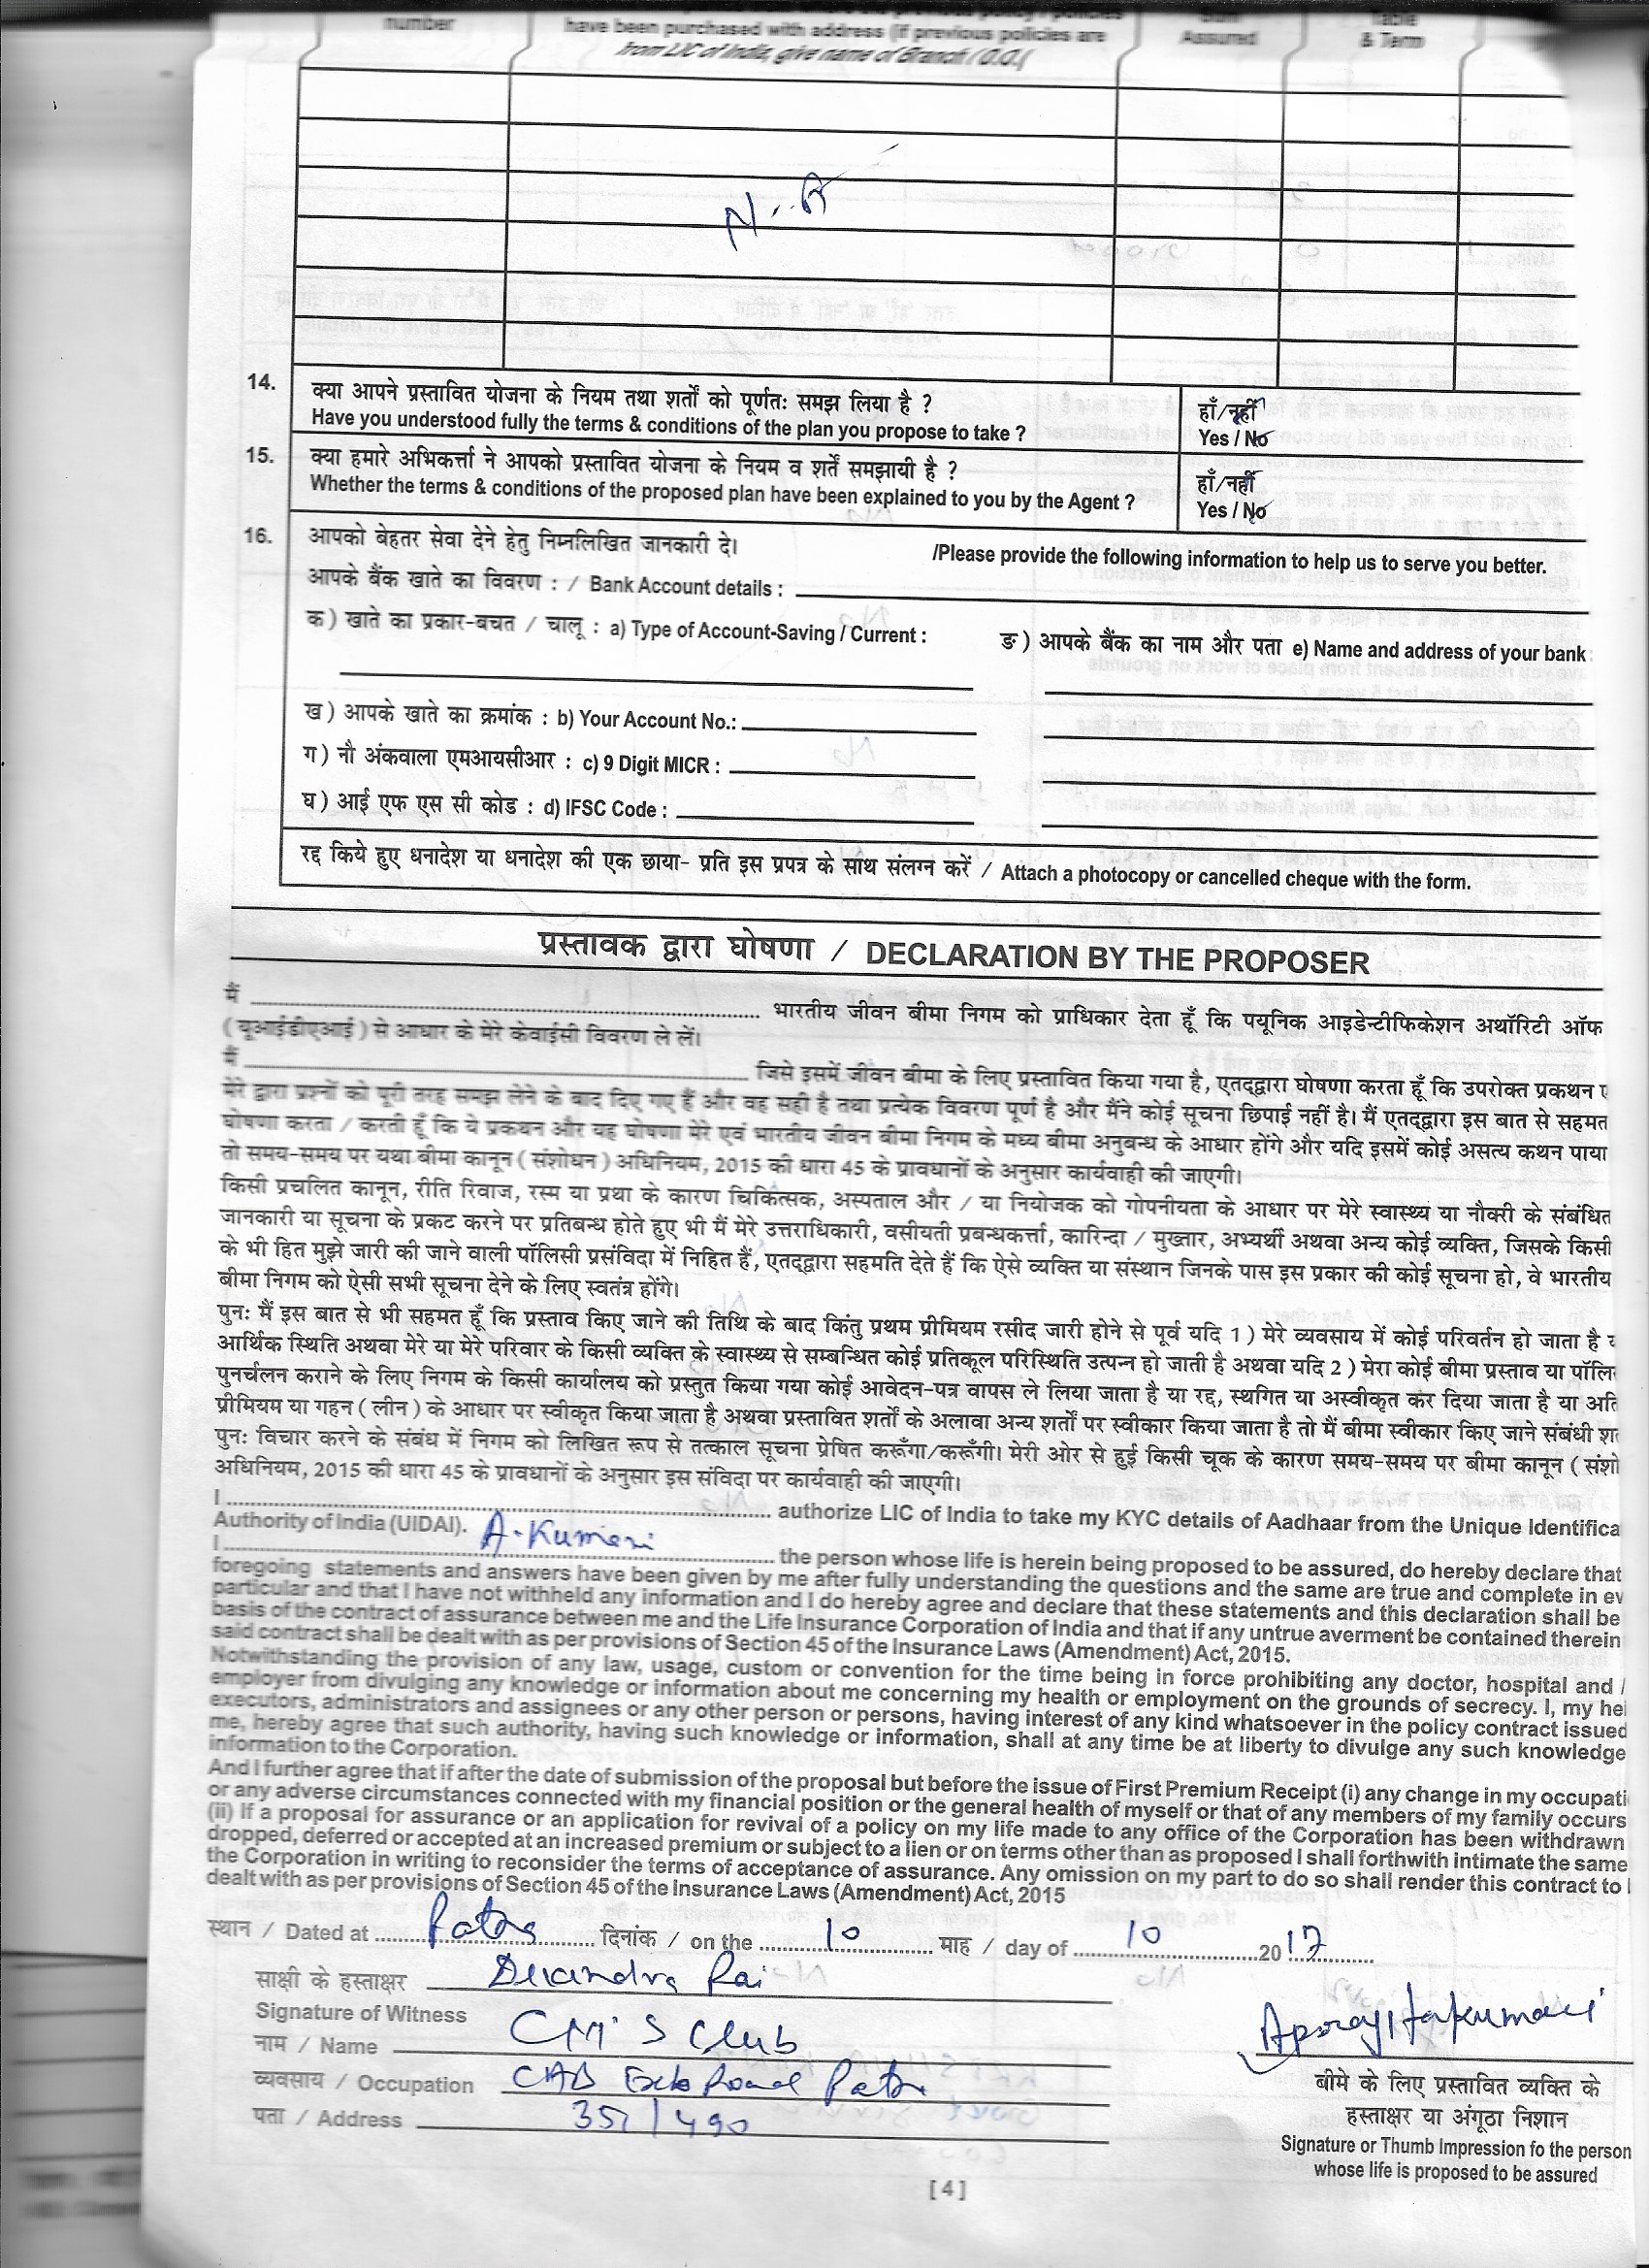 number
have been purchased with address (if previous policies are
from LIC of India, give name of Branch / D.O.(
Assured
Table
& Term
N.A
14. क्या आपने प्रस्तावित योजना के नियम तथा शर्तों को पूर्णतः समझ लिया है ?
हाँ/नहीं
Have you understood fully the terms & conditions of the plan you propose to take ?
Yes / No
15. क्या हमारे अभिकर्त्ता ने आपको प्रस्तावित योजना के नियम व शर्तें समझायी है ?
हाँ/नहीं
Whether the terms & conditions of the proposed plan have been explained to you by the Agent ?
Yes / No
16. आपको बेहतर सेवा देने हेतु निम्नलिखित जानकारी दे। /Please provide the following information to help us to serve you better.
आपके बैंक खाते का विवरण : / Bank Account details :
क) खाते का प्रकार-बचत / चालू : a) Type of Account-Saving / Current :
ङ) आपके बैंक का नाम और पता e) Name and address of your bank
ख) आपके खाते का क्रमांक : b) Your Account No.:
ग) नौ अंकवाला एमआयसीआर : c) 9 Digit MICR :
घ) आई एफ एस सी कोड : d) IFSC Code :
रद्द किये हुए धनादेश या धनादेश की एक छाया- प्रति इस प्रपत्र के साथ संलग्न करें / Attach a photocopy or cancelled cheque with the form.
प्रस्तावक द्वारा घोषणा / DECLARATION BY THE PROPOSER
मैं ........ भारतीय जीवन बीमा निगम को प्राधिकार देता हूँ कि पयूनिक आइडेन्टीफिकेशन अथॉरिटी ऑफ
(यूआईडीएआई) से आधार के मेरे केवाईसी विवरण ले लें।
मैं ........ जिसे इसमें जीवन बीमा के लिए प्रस्तावित किया गया है, एतद्द्वारा घोषणा करता हूँ कि उपरोक्त प्रकथन ए
मेरे द्वारा प्रश्नों को पूरी तरह समझ लेने के बाद दिए गए हैं और वह सही है तथा प्रत्येक विवरण पूर्ण है और मैंने कोई सूचना छिपाई नहीं है। मैं एतद्द्वारा इस बात से सहमत
घोषणा करता / करती हूँ कि ये प्रकथन और यह घोषणा मेरे एवं भारतीय जीवन बीमा निगम के मध्य बीमा अनुबन्ध के आधार होंगे और यदि इसमें कोई असत्य कथन पाया
तो समय-समय पर यथा बीमा कानून (संशोधन) अधिनियम, 2015 की धारा 45 के प्रावधानों के अनुसार कार्यवाही की जाएगी।
किसी प्रचलित कानून, रीति रिवाज, रस्म या प्रथा के कारण चिकित्सक, अस्पताल और / या नियोजक को गोपनीयता के आधार पर मेरे स्वास्थ्य या नौकरी के संबंधित
जानकारी या सूचना के प्रकट करने पर प्रतिबन्ध होते हुए भी मैं मेरे उत्तराधिकारी, वसीयती प्रबन्धकर्त्ता, कारिन्दा / मुख्तार, अभ्यर्थी अथवा अन्य कोई व्यक्ति, जिसके किसी
के भी हित मुझे जारी की जाने वाली पॉलिसी प्रसंविदा में निहित हैं, एतद्द्वारा सहमति देते हैं कि ऐसे व्यक्ति या संस्थान जिनके पास इस प्रकार की कोई सूचना हो, वे भारतीय
बीमा निगम को ऐसी सभी सूचना देने के लिए स्वतंत्र होंगे।
पुनः मैं इस बात से भी सहमत हूँ कि प्रस्ताव किए जाने की तिथि के बाद किंतु प्रथम प्रीमियम रसीद जारी होने से पूर्व यदि 1) मेरे व्यवसाय में कोई परिवर्तन हो जाता है
आर्थिक स्थिति अथवा मेरे या मेरे परिवार के किसी व्यक्ति के स्वास्थ्य से सम्बन्धित कोई प्रतिकूल परिस्थिति उत्पन्न हो जाती है अथवा यदि 2) मेरा कोई बीमा प्रस्ताव या पॉलि
पुनर्चलन कराने के लिए निगम के किसी कार्यालय को प्रस्तुत किया गया कोई आवेदन-पत्र वापस ले लिया जाता है या रद्द, स्थगित या अस्वीकृत कर दिया जाता है या अति
प्रीमियम या गहन (लीन) के आधार पर स्वीकृत किया जाता है अथवा प्रस्तावित शर्तों के अलावा अन्य शर्तों पर स्वीकार किया जाता है तो मैं बीमा स्वीकार किए जाने संबंधी श
पुनः विचार करने के संबंध में निगम को लिखित रूप से तत्काल सूचना प्रेषित करूँगा/करूँगी। मेरी ओर से हुई किसी चूक के कारण समय-समय पर बीमा कानून (संशो
अधिनियम, 2015 की धारा 45 के प्रावधानों के अनुसार इस संविदा पर कार्यवाही की जाएगी।
I ........ authorize LIC of India to take my KYC details of Aadhaar from the Unique Identifica
Authority of India (UIDAI).
I ........ A. Kumari ........ the person whose life is herein being proposed to be assured, do hereby declare that
foregoing statements and answers have been given by me after fully understanding the questions and the same are true and complete in ev
particular and that I have not withheld any information and I do hereby agree and declare that these statements and this declaration shall be
basis of the contract of assurance between me and the Life Insurance Corporation of India and that if any untrue averment be contained therein
said contract shall be dealt with as per provisions of Section 45 of the Insurance Laws (Amendment) Act, 2015.
Notwithstanding the provision of any law, usage, custom or convention for the time being in force prohibiting any doctor, hospital and /
employer from divulging any knowledge or information about me concerning my health or employment on the grounds of secrecy. I, my hei
executors, administrators and assignees or any other person or persons, having interest of any kind whatsoever in the policy contract issued
me, hereby agree that such authority, having such knowledge or information, shall at any time be at liberty to divulge any such knowledge
information to the Corporation.
And I further agree that if after the date of submission of the proposal but before the issue of First Premium Receipt (i) any change in my occupati
or any adverse circumstances connected with my financial position or the general health of myself or that of any members of my family occurs
(ii) If a proposal for assurance or an application for revival of a policy on my life made to any office of the Corporation has been withdrawn
dropped, deferred or accepted at an increased premium or subject to a lien or on terms other than as proposed I shall forthwith intimate the same
the Corporation in writing to reconsider the terms of acceptance of assurance. Any omission on my part to do so shall render this contract to
dealt with as per provisions of Section 45 of the Insurance Laws (Amendment) Act, 2015
स्थान / Dated at ..... Patna ..... दिनांक / on the ..... 10 ..... माह / day of ..... 10 ..... 20 17
साक्षी के हस्ताक्षर Rai
Signature of Witness
नाम / Name CM'S Club
व्यवसाय / Occupation CAB Road Patna
पता / Address 351/490
Aparajita kumari
बीमे के लिए प्रस्तावित व्यक्ति के
हस्ताक्षर या अंगूठा निशान
Signature or Thumb Impression fo the person
whose life is proposed to be assured
[4]